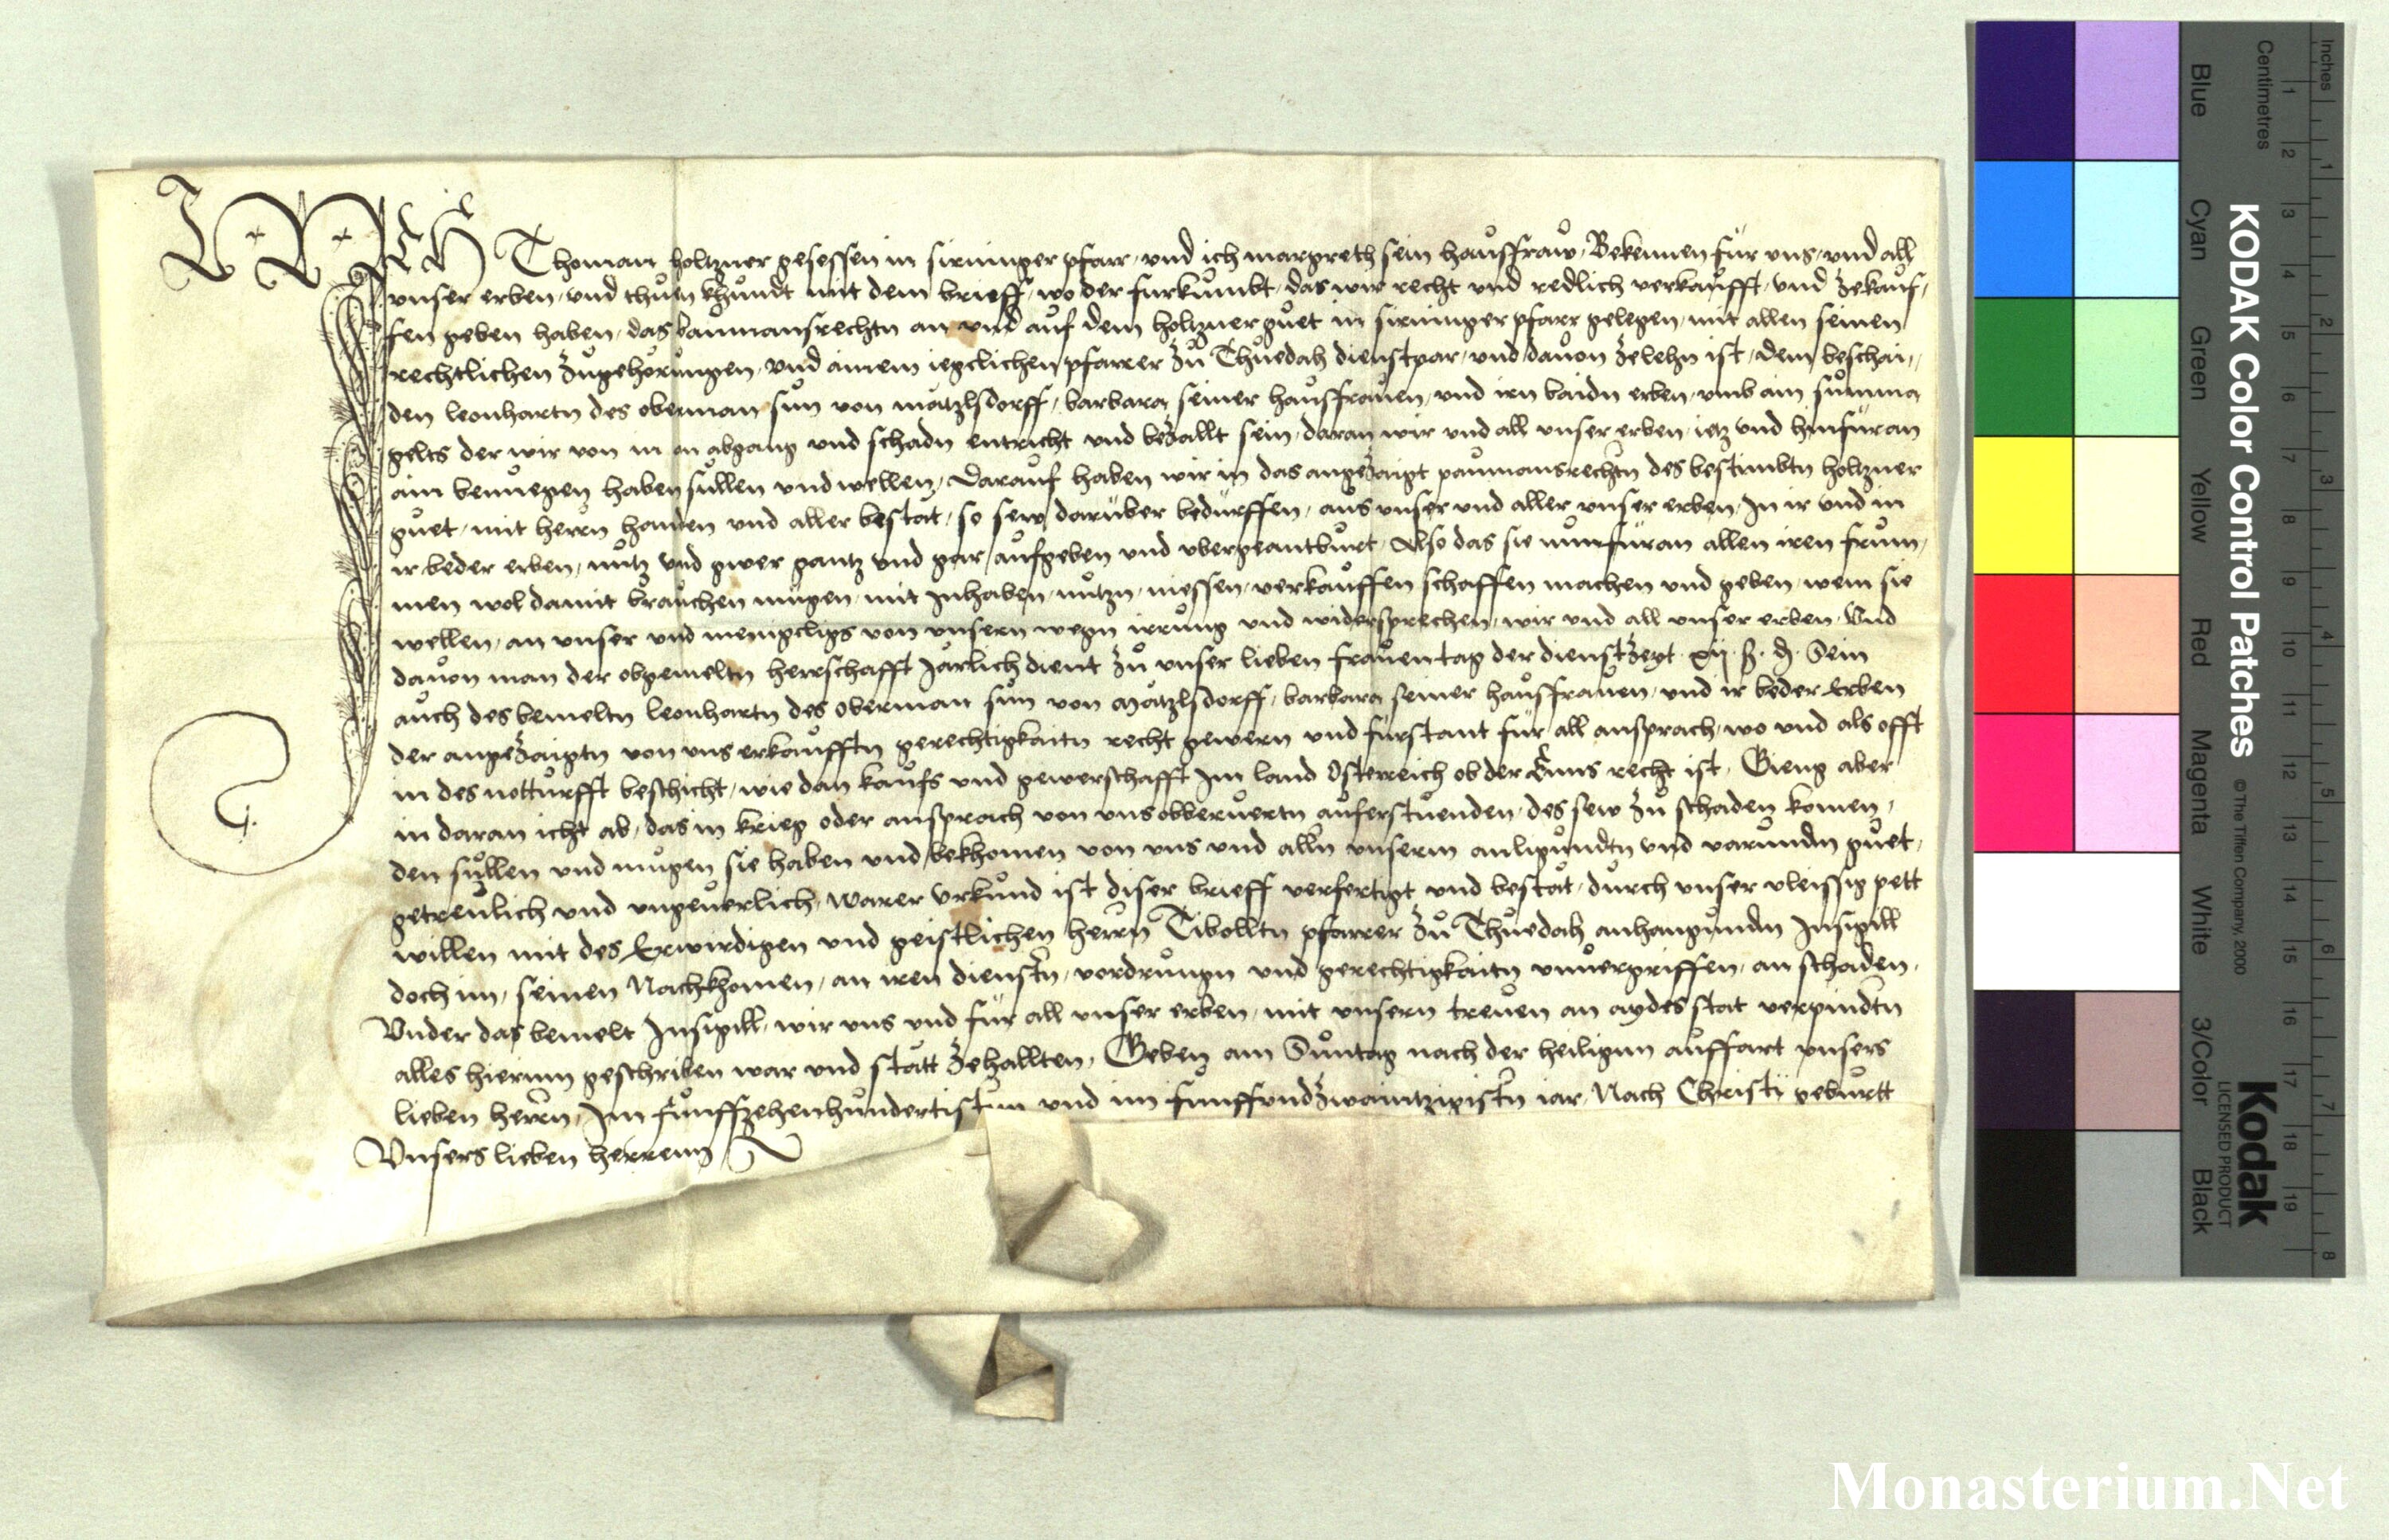 Ich Thoman holtzner gesessen in sirninger pfarr, vnd ich margreth sein haůsfraw, Bekennen für vns, vnd all
vnser erben, vnd thuen khundt mit dem brieff, wo der furkumbt, das wir recht vnd redlich verkaufft, vnd zekauf,
fen geben haben, das baumansrechtn an vnd auf dem holtzner guet in sirninger pfarr gelegen, mit allen seinen
rechtlichen zugehorungen, vnd ainem iegclichen pfarrer zu Thuedah dienstpar, vnd dauon zelehn ist, dem beschai,,
den leonhartn des oberman sun von matzlsdorff, barbara seiner hausfrauen, vnd irn baidn erben, vmb ain summa
gelts der wir von in on abgang vnd schadn entricht vnd bezallt sein, daran wir vnd all vnser erben, ietz vnd hinfuran
ain benuegen haben sullen vnd wellen, Darauf haben wir in das angezaigt paumansrechtn des bestimbtn holtzner
guet, mit herrn handen vnd aller bestat, so sew daruber bedurffen, aus vnser vnd aller vnser erben, In ir vnd in
ir beder erben, nutz vnd gwer gantz vnd gar aufgeben vnd vbergeantburt, Also das sie nun furan allen iren frum,
men wol damit brauchen mugen, mit Inhaben, nutzn, niessen, verkauffen schaffen machen vnd geben, wem sie
wellen, an vnser vnd menigclichs von vnsern wegn irrung vnd widersprechen, wir vnd all vnser erben, Vnd
dauon man der obgemeltn herrschafft Jarlich dient zu vnser lieben frauen tag der dienstzeyt xij ß ₰ Sein
auch des bemeltn leonhartn des oberman sun von Matzlsdorff, barbara seiner hausfrauen, vnd ir beder Erben
der angezaigtn von vns erkaufftn gerechtigkaitn recht gewern vnd furstant fur all ansprach, wo vnd als offt
in des notturfft beschicht, wie dan kaufs vnd gewerschafft Im land Osterreich ob der Enns recht ist, Gieng aber
in daran icht ab, das in krieg oder ansprach von vns obberuertn auferstuenden, des sew zu schaden komen,
den sullen vnd mugen sie haben vnd bekhomen von vns vnd alln vnserm anligundtn vnd varundn guet,
getreulich vnd vngeuerlich, Warer Vrkund ist diser brieff verfertigt vnd bestat, durch vnser vleissig pett
willen mit des Erwirdigen vnd geistlichen herrn Tibolltn pfarrer zu Thuedah anhangundn Insigill
doch im, seinen Nachkhomen, an iren dienstn, vordrungn vnd gerechtigkaitn vnuergriffen, an schaden,
Vnder das bemelt Insigill, wir vns vnd fur all vnser erben, mit vnsern treuen an aydes stat verpindtn
alles hierinn geschriben war vnd statt zehallten, Geben am Suntag nach der heiligen auffart vnsers
lieben herrn, Im funffzehenhundertistn vnd im funffvndzwaintzigistn iar, Nach Christi geburtt
Vnsers lieben herrenn
KODAK Color Control Patches
© The Tiffen Company, 2000
Kodak
LICENSED PRODUCT
Inches
Centimetres
Blue Cyan Green Yellow Red Magenta White 3/Color Black
1 2 3 4 5 6 7 8
1 2 3 4 5 6 7 8 9 10 11 12 13 14 15 16 17 18 19
Monasterium.Net